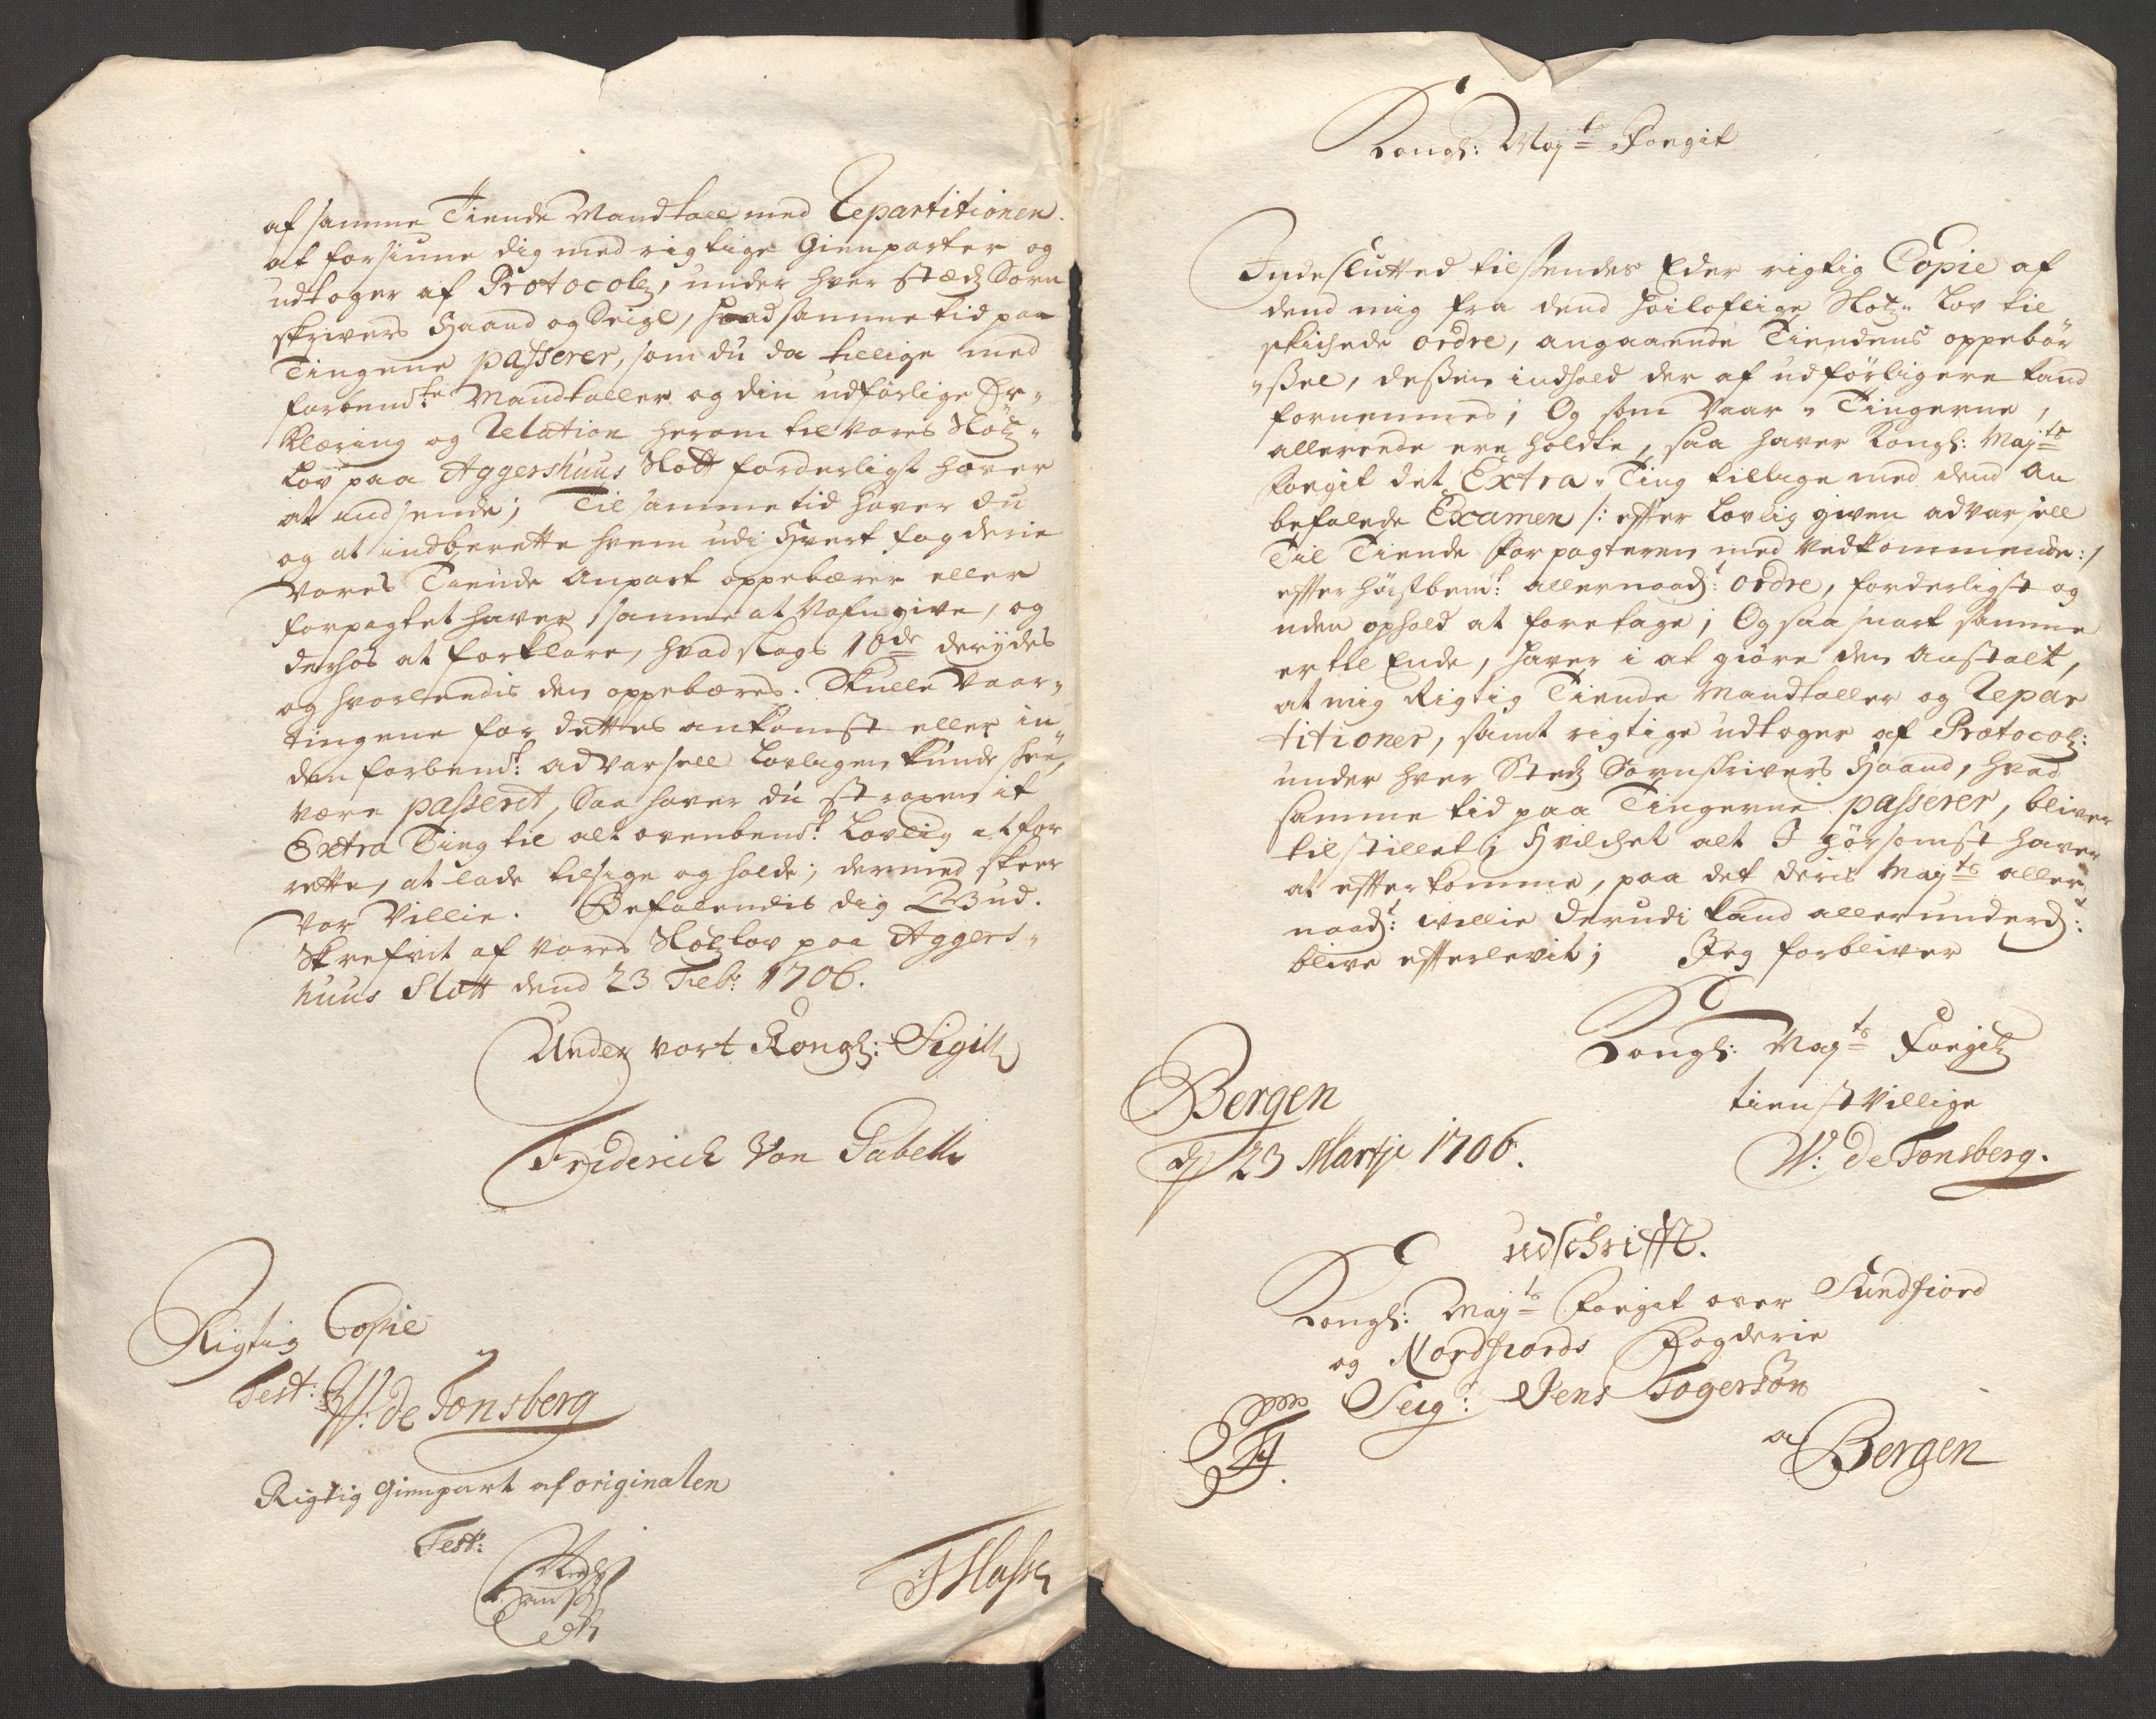 af samme Tiende Mandtall med Repartitionen
at forsiune dig med rigtige Gienparter og
udtoger af Protocoll, under hver stæds Soren
skrivers Haand og Seigl, hvad samme tid paa
Tingene passerer, som du da tillige med
forbemte Mandtaller og din udførlige Er¬
klæring og Relation herom til Vores Slotz¬
Lov paa Aggershuus Slott forderligst haver
at indsende; Til samme tid haver du
og at indberette hvem udi Hvert fogderie
Vores Tiende Anpart oppebærer eller
forpagtet haver, samme at Nafngive, og
derhos at forklare, hvad slags 10de derydes
og hvorledis den oppebæres. Skulle Vaar¬
tingene for dettes ankomst eller in¬
den forbemt: advarsell Lovligen kunde skee,
være passeret, Saa haver du straxen it
Extra Ting til alt ovenbemt: Lovlig at for
rette, at lade tilsige og holde; dermed skeer
vor Villie. Befalendis dig Gud.
Skrefvit af Vores Slotzlov paa Aggers¬
huus Slott dend 23 Feb: 1706.
Under vort Kongl: Sigill
Friderich Von Gabell
Rigtig Copie
Test: W: de Tonsberg
Rigtig Gienpart af originalen
Test:
Kongl: Mayts Foegit
Indeslutted tilsendes Eder rigtig Copie af
dend mig fra dend høiloflige Slotz Lov til
skichede ordre, angaaende Tiendens oppebør
sel, dessen indhold der af udførligere kand
fornemmes; Og som Vaar Tingerne,
allerede ere holdte, saa haver Kongl: Mayts
Foegit det Extra Ting tillige med dend An
befalede Examen /: effter Lovlig given advarsell
Til Tiende forpagteren med Vedkommende :/
effter høistbemt: allernaadt: ordre, forderligst og
uden ophold at foretage; Og saa snart samme
er til Ende, haver i at giøre den Anstalt,
at mig Rigtig Tiende Mandtaller og Repar
titioner, samt rigtige udtoger af Protocoll:
under hver Stedz Sorenskrivers Haand, hvad
samme tid paa Tingerne passerer, bliver
tilstillet; Hvilchet alt I hørsomst haver
at effterkomme, paa det deris Mayts aller
naadt: willie derudi kand allerunderdt:
blive effterlevit; Jeg forbliver
Kongl: Mayts Foegitz
tienstvillige
W: de Tonsberg.
Bergen
d 23 Martji 1706.
udschrifft.
Kongl: Mayts Foegit over Sundfiord
og Nordfiords Fogderie
Seigr: Jens Tøgersøn
a Bergen